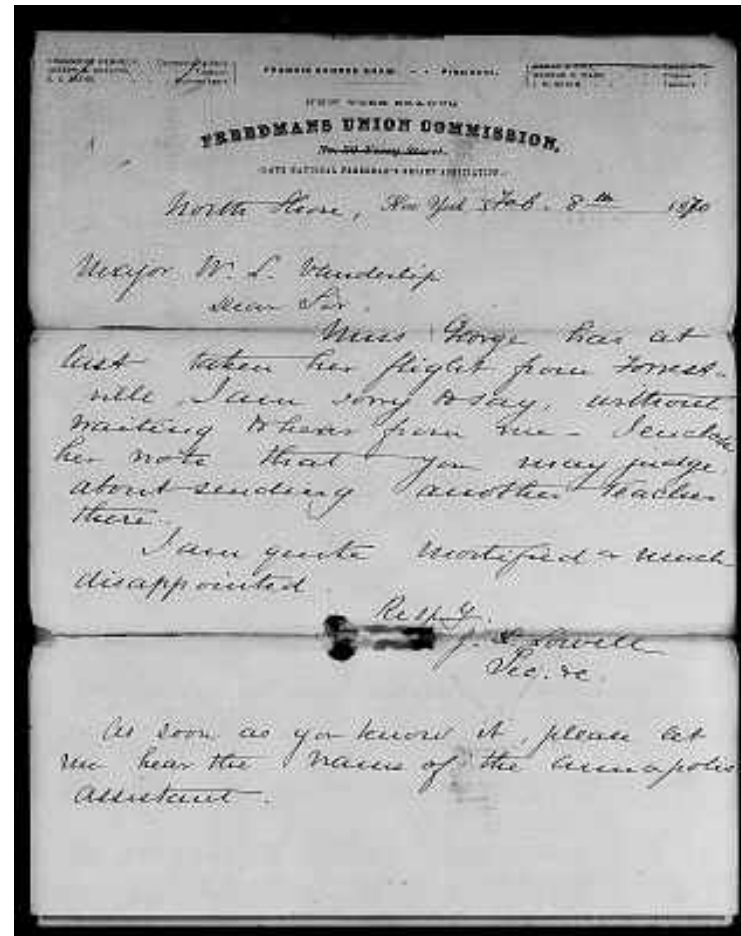 FRANCIS GEORGE SHAW - - PRESIDENT.
NEW YORK BRANCH
FREEDMANS UNION COMMISSION,
No. 30 Vesey Street.
(LATE NATIONAL FREEDMAN'S RELIEF ASSOCIATION.)
North Shore, New York Feb. 8th 1870
Major W. L. Vanderlip
Dear Sir.
Miss George has at
last taken her flight from Forrest-
ville I am sorry to say, without
waiting to hear from me - I enclose
her note that you may judge
about sending another teacher
there.
I am quite mortified & much
disappointed
Resp.y.
J. S. Lowell
Sec. &c.
As soon as you know it, please let
me hear the name of the Annapolis
assistant.